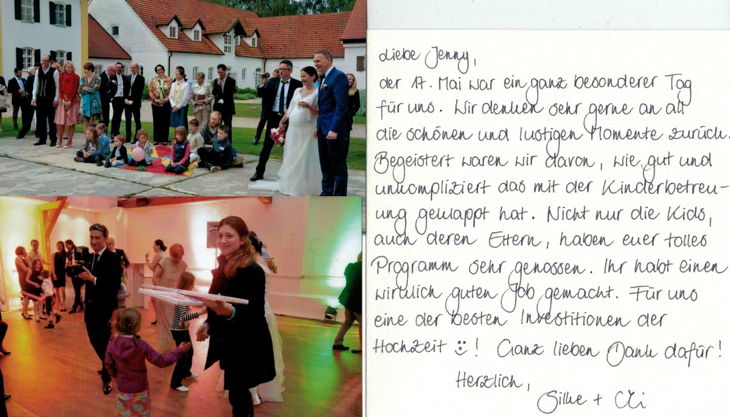 Liebe Jenny,
der 17. Mai war ein ganz besonderer Tag
für uns. Wir denken sehr gerne an all
die schönen und lustigen Momente zurück.
Begeistert waren wir davon, wie gut und
unkompliziert das mit der Kinderbetreu-
ung geklappt hat. Nicht nur die Kids,
auch deren Eltern, haben euer tolles
Programm sehr genossen. Ihr habt einen
wirklich guten Job gemacht. Für uns
eine der besten Investitionen der
Hochzeit ! Ganz lieben Dank dafür!
Herzlich,
Silke +